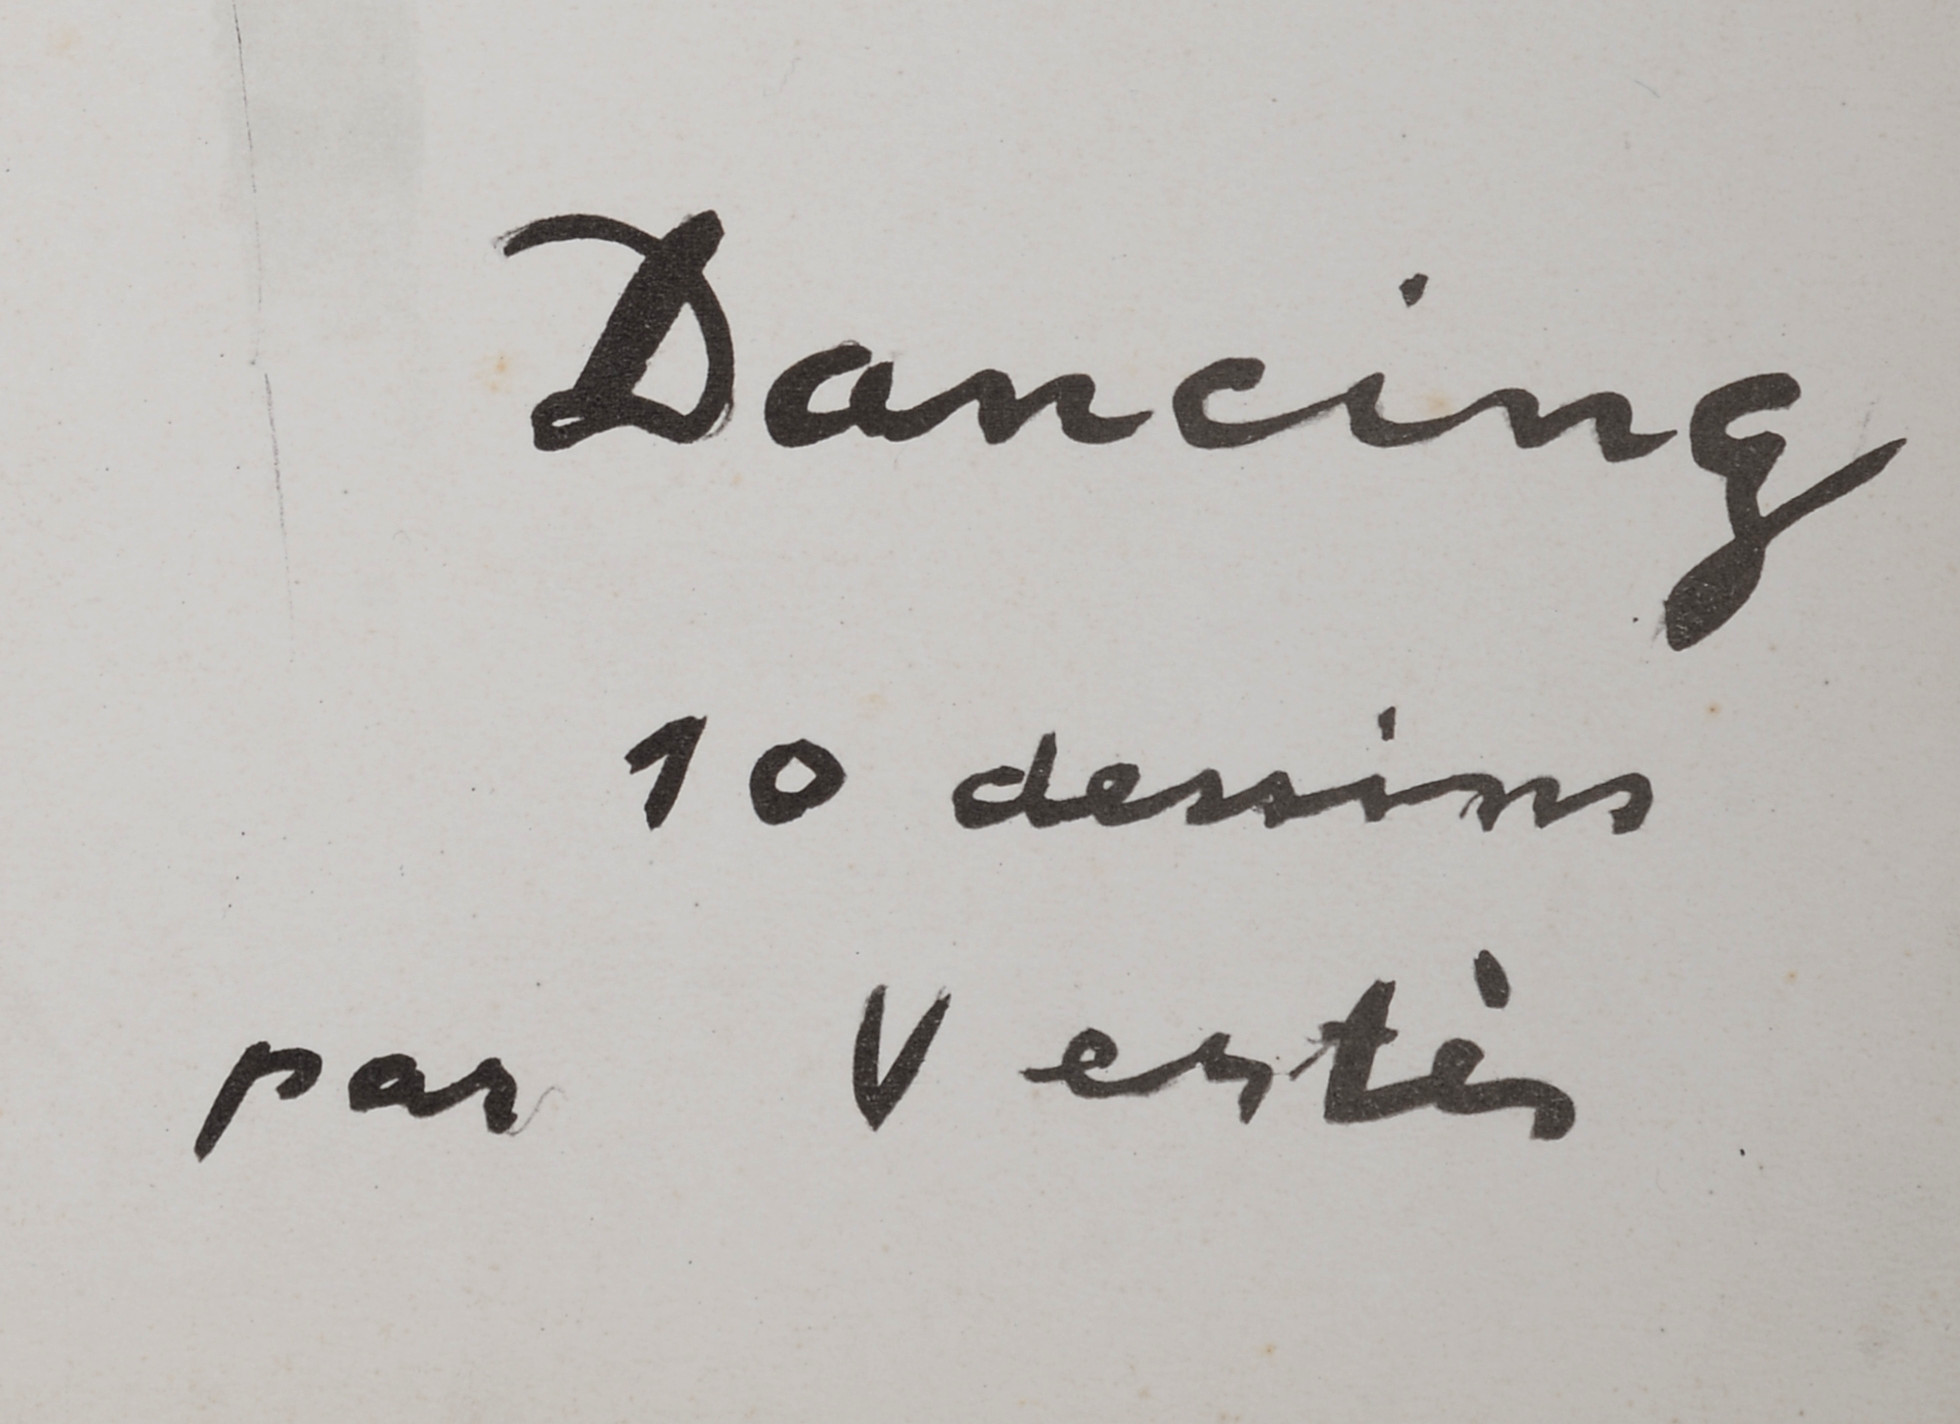 Dancing
10 dessins
par Vertès